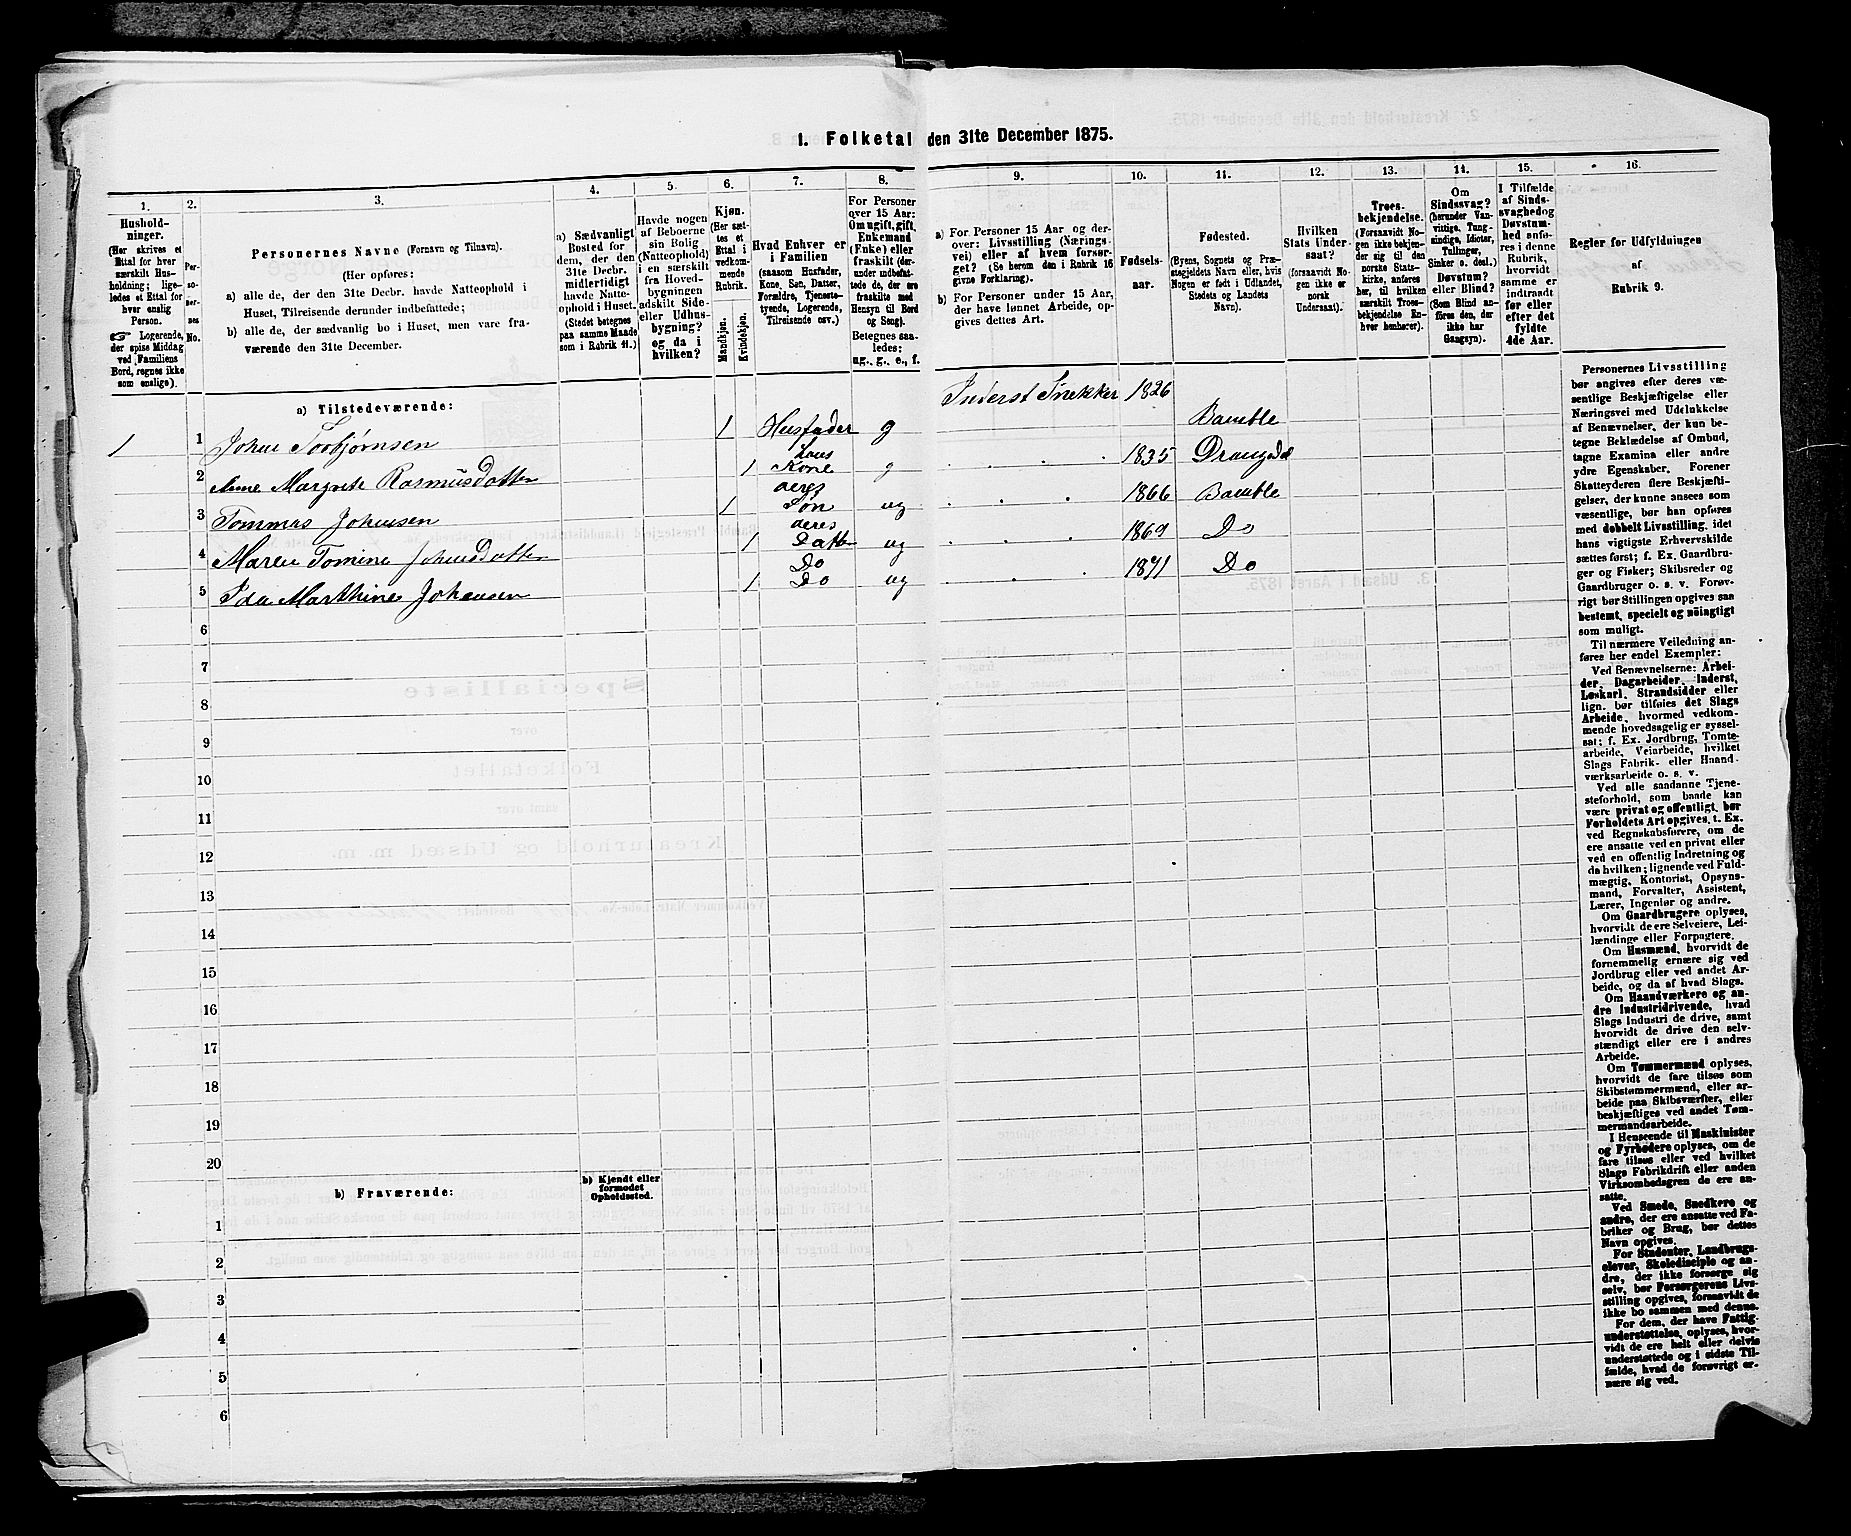 1. Folketal den 31te December 1875.
1. 2. 3. 4. 5. 6. 7. 8. 9. 10. 11. 12. 13. 14. 15. 16.
Hushold-
ninger.
(Her skrives et
Ettal for hver
særskilt Hus-
holdning; lige-
ledes et Ettal for
hver enslig
Person.
Logerende,
der spise Middag
ved Familiens
Bord, regnes ikke
som enslige).
Per-
so-
ner-
nes
No.
Personernes Navne (Fornavn og Tilnavn).
(Her opføres:
a) alle de, der den 31te Decbr. havde Natteophold i
Huset, Tilreisende derunder indbefattede;
b) alle de, der sædvanlig bo i Huset, men vare fra-
værende den 31te December.
a) Sædvanligt
Bosted for
dem, der den
31te Decbr.
midlertidigt
havde Natte-
ophold i Huset.
(Stedet betegnes
paa samme Maade
som i Rubrik 11.)
Havde nogen
af Beboerne
sin Bolig
(Natteophold)
i en særskilt
fra Hoved-
bygningen
adskilt Side-
eller Udhus-
bygning?
og da i
hvilken?
Kjøn.
(Her sæt-
tes et
Ettal i
vedkom-
mende
Rubrik.
Mandkjøn.
Kvindekjøn.
Hvad Enhver er
i Familien
(saasom Husfader,
Kone, Søn, Datter,
Forældre, Tjeneste-
tyende, Logerende,
Tilreisende osv.)
For Personer
over 15 Aar:
Om ugift, gift,
Enkemand
(Enke) eller
fraskilt (der-
under indbefat-
tede de, der ere
fraskilte med
Hensyn til Bord
og Seng).
Betegnes saa-
ledes:
ug., g., e., f.
a) For Personer 15 Aar og der-
over: Livsstilling (Nærings-
vei) eller af hvem forsør-
get? (Se herom den i Rubrik 16
givne Forklaring).
b) For Personer under 15 Aar,
der have lønnet Arbeide, op-
gives dettes Art.
Fødsels-
aar.
Fødested.
(Byens, Sognets og Præ-
stegjeldets Navn eller, hvis
Nogen er født i Udlandet,
Stedets og Landets
Navn).
Hvilken
Stats Under-
saat?
(forsaavidt No-
gen ikke er
norsk
Undersaat).
Troes-
bekjendelse.
(Forsaavidt No-
gen ikke bekjen-
der sig til den
norske Stats-
kirke, anføres
her, til hvilken
særskilt Troes-
bekjendelse En-
hver henhører).
Om
Sindssvag?
(herunder Van-
vittige, Tung-
sindige, Idioter,
Tullinger,
Sinker o. desl.)
Døvstum?
eller Blind?
(Som Blind an-
føres den, der
ikke har
Gangsyn).
I Tilfælde
af Sinds-
svaghed og
Døvstum-
hed anfø-
res i denne
Rubrik,
hvorvidt
samme er
indtraadt
før eller
efter det
fyldte
4de Aar.
Regler for Udfyldningen
af
Rubrik 9.
a) Tilstedeværende:
1 1 Johan Torbjørnsen 1 Husfader g Inderst Snekker 1826 Bamble
2 Anne Margrete Rasmusdatter 1 hans Kone g 1835 Drangedal
3 Tommas Johansen 1 deres Søn ug 1866 Bamble
4 Maren Tomine Johansdatter 1 deres Datter ug 1869 Do
5 Ida Marthine Johansen 1 Do Do ug 1871 Do
6
7
8
9
10
11
12
13
14
15
16
17
18
19
20
b) Fraværende:
b) Kjendt eller
formodet
Opholdssted.
1
2
3
4
5
6
Personernes Livsstilling
bør angives efter deres væ-
sentlige Beskjæftigelse eller
Næringsvei med Udelukkelse
af Benævnelser, der kun be-
tegne Beklædelse af Ombud,
tagne Examina eller andre
ydre Egenskaber. Forener
Skatteyderen flere Beskjæfti-
gelser, der kunne ansees som
væsentlige, bør han opføres
med dobbelt Livsstilling, idet
hans vigtigste Erhvervskilde
sættes først; f. Ex. Gaardbru-
ger og Fisker; Skibsreder og
Gaardbruger o. s. v. Forøv-
rigt bør Stillingen opgives saa
bestemt, specielt og nøiagtigt
som muligt.
Til nærmere Veiledning an-
føres her endel Exempler:
Ved Benævnelserne: Arbei-
der, Dagarbeider, Inderst,
Løskarl, Strandsidder eller
lign. bør tilføies det Slags
Arbeide, hvormed vedkom-
mende hovedsagelig er syssel-
sat; f. Ex. Jordbrug, Tomte-
arbeide, Veiarbeide, hvilket
Slags Fabrik- eller Haand-
værksarbeide o. s. v.
Ved alle saadanne Tjene-
steforhold, som baade kan
være privat og offentligt, bør
Forholdets Art opgives, t. Ex.
ved Regnskabsførere, om de
ere ansatte ved en privat eller
ved en offentlig Indretning og
da hvilken; lignende ved Fuld-
mægtig, Kontorist, Opsyns-
mand, Forvalter, Assistent,
Lærer, Ingeniør og andre.
Om Gaardbrugere oplyses,
hvorvidt de ere Selveiere, Lei-
lændinge eller Forpagtere.
Om Husmænd, hvorvidt de
fornemmelig ernære sig ved
Jordbrug eller ved andet Ar-
beide, og da af hvad Slags.
Om Haandværkere og an-
dre Industridrivende, hvad
Slags Industri de drive, samt
hvorvidt de drive den selv-
stændigt eller ere i andres
Arbeide.
Om Tømmermænd oplyses,
hvorvidt de fare tilsøs som
Skibstømmermænd, eller ar-
beide paa Skibsværfter, eller
beskjæftiges ved andet Tøm-
mermandsarbeide.
I Henseende til Maskinister
og Fyrbødere oplyses, om de
fare tilsøs eller ved hvilket
Slags Fabrikdrift eller anden
Virksomhedsgren de ere an-
satte.
Ved Smede, Snedkere og
andre, der ere ansatte ved Fa-
briker og Brug, bør dettes
Navn opgives.
For Studenter, Landbrugs-
elever, Skoledisciple og an-
dre, der ikke forsørge sig
selv, bør Forsørgerens Livs-
stilling opgives, forsaavidt de
ikke bo sammen med denne.
For dem, der have Fattig-
understøttelse, oplyses, hvor-
vidt de ere helt eller delvis
understøttede og i sidste Til-
fælde, hvad de forøvrigt er-
nære sig ved.